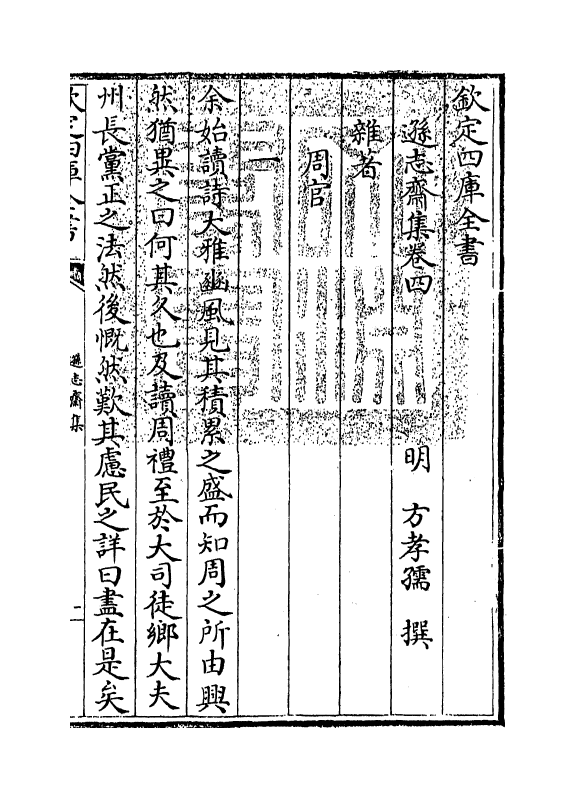 欽定四庫全書
遜志齋集卷四
明 方孝孺 撰
雜著
周官
一
余始讀詩大雅豳風見其積累之盛而知周之所由興
然猶異之曰何其久也及讀周禮至於大司徒鄉大夫
州長黨正之法然後慨然歎其慮民之詳曰盡在是矣
欽定四庫全書
遜志齋集